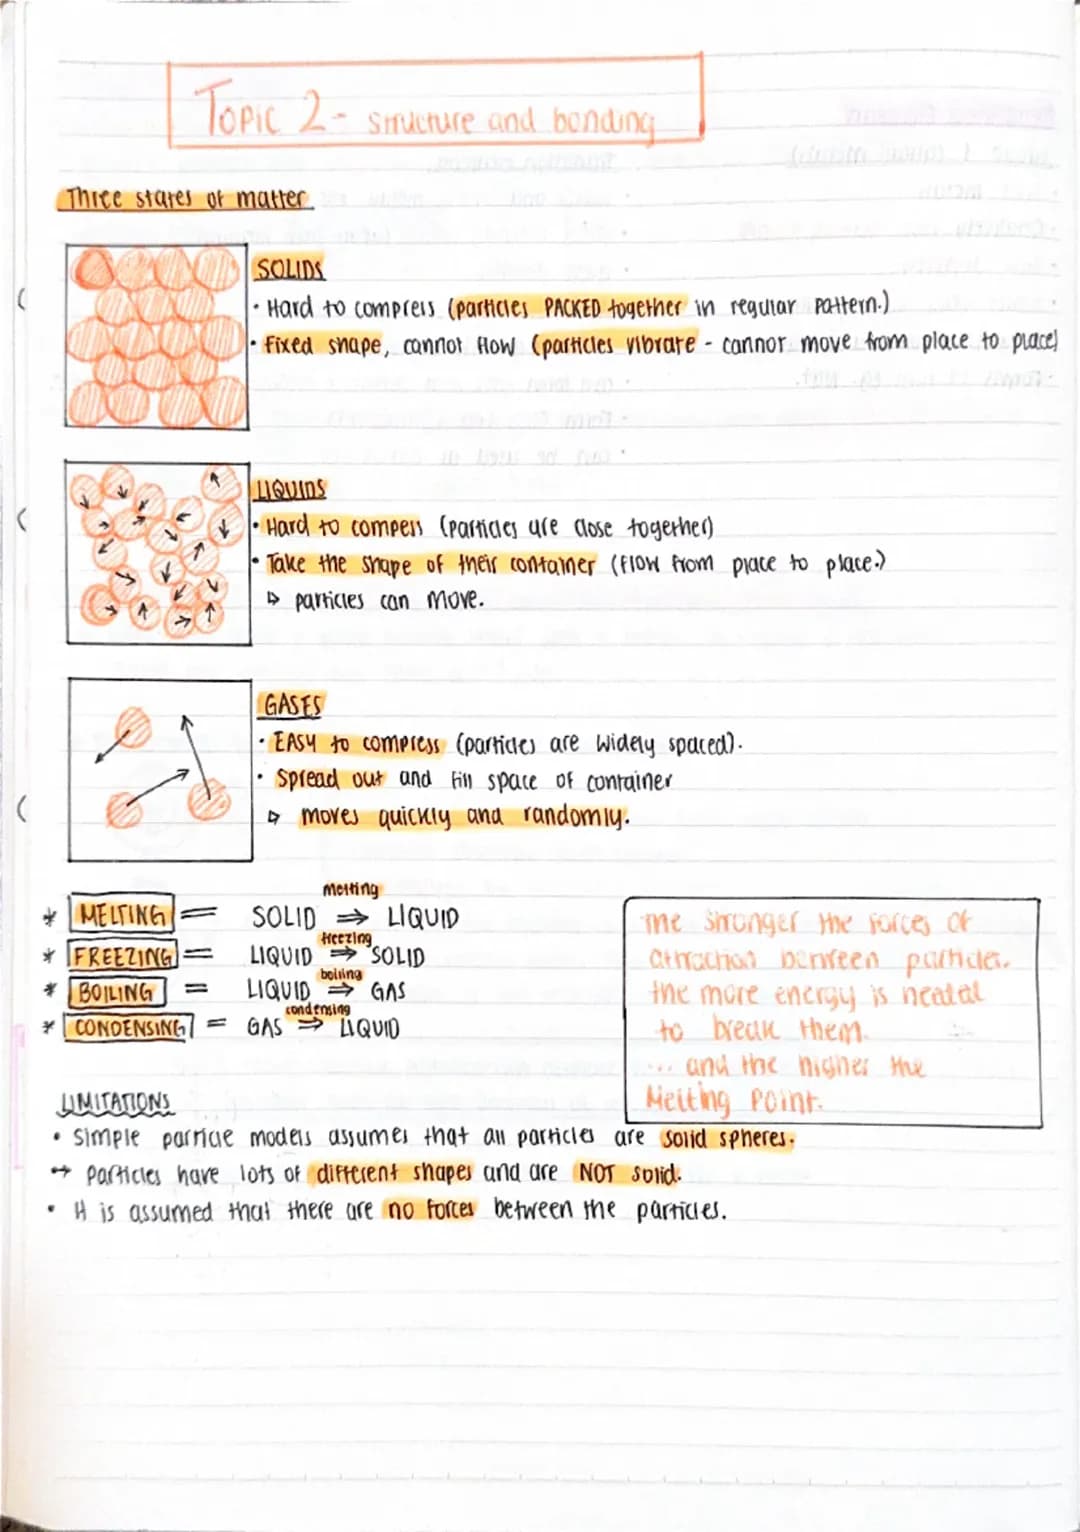 Topic 2- structure and bonding
Three states of matter
SOLIDS
• Hard to compress (particles PACKED together in regular pattern.)
• Fixed shape, cannot flow (particles vibrate - cannot move from place to place)
LIQUIDS
• Hard to compers (particles are close together)
• Take the shape of their container (flow from place to place.)
▷ particles can move.
GASES
• EASY to compress (particles are widely spaced).
• Spread out and fill space of container
▷ moves quickly and randomly.
melting
* MELTING = SOLID ⇒ LIQUID
freezing
* FREEZING = LIQUID ⇒ SOLID
boiling
* BOILING = LIQUID ⇒ GAS
condensing
* CONDENSING = GAS ⇒ LIQUID
The stronger the forces of
attraction between particles.
the more energy is neated
to break them.
... and the higher the
Melting Point.
LIMITATIONS
• Simple particle models assumes that all particles are solid spheres.
→ Particles have lots of different shapes and are NOT solid.
• It is assumed that there are no forces between the particles.